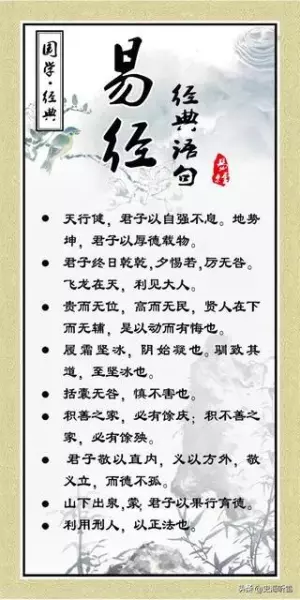 国学·经典
易经
经典语句
天行健，君子以自强不息。地势
坤，君子以厚德载物。
君子终日乾乾,夕惕若,厉无咎。
飞龙在天，利见大人。
贵而无位，高而无民，贤人在下
而无辅，是以动而有悔也。
履霜坚冰，阴始凝也。驯致其
道，至坚冰也。
括囊无咎，慎不害也。
积善之家，必有馀庆；积不善之
家，必有馀殃。
君子敬以直内，义以方外，敬
义立，而德不孤。
山下出泉,蒙;君子以果行育德。
利用刑人，以正法也。
头条